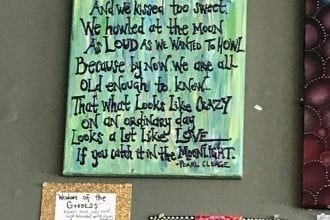 And we kissed too sweet.
We howled at the Moon
As LOUD As we WANTED To HOWL
Because by Now we are all
old enough to know..
That what Looks Like CRAZY
on an ordinary day
Looks a Lot Like LOVE
If you catch it in the MOONLIGHT.
-PEARL CLEAGE
WISDOM OF THE
GODDESS